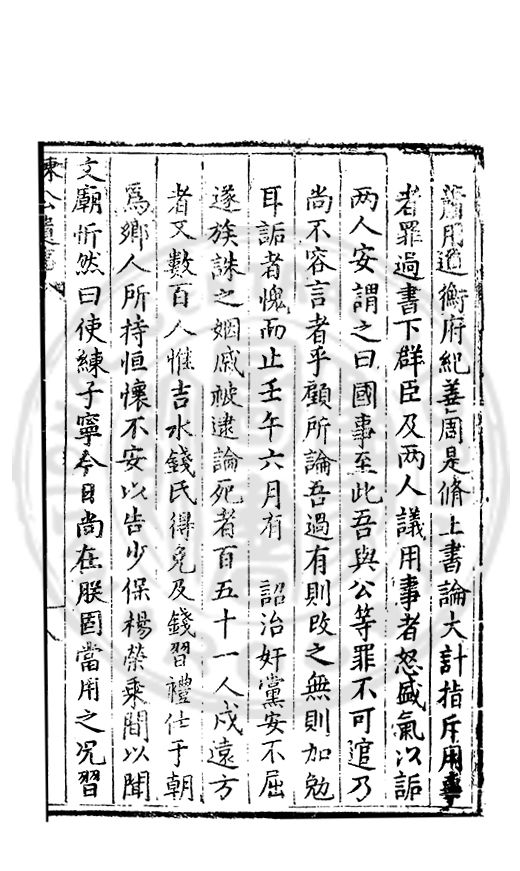 蕭用道衡府紀善周是脩上書論大計指斥用事
者罪過書下群臣及两人議用事者怒盛氣以詬
两人安謂之曰國事至此吾與公等罪不可逭乃
尚不容言者乎顧所論吾過有則改之無則加勉
耳詬者愧而止壬午六月有　詔治奸黨安不屈
遂族誅之姻戚被逮論死者百五十一人戍遠方
者又數百人惟吉水錢氏得免及錢習禮仕于朝
爲鄉人所持恒懷不安以告少保楊榮乘間以聞
文廟忻然曰使練子寧今日尚在朕固當用之况習
練公遺事